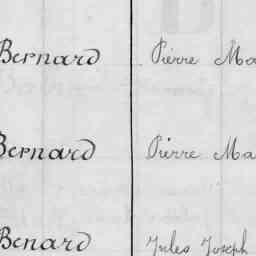 Bernard Pierre Ma
Bernard Pierre Ma
Benard Jules Joseph